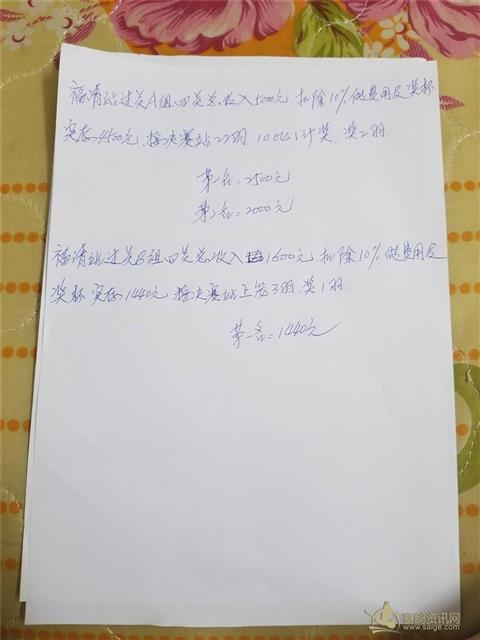 福清站过关A组四关总收入5000元 扣除10%做费用及奖杯
实存4500元、按决赛站22羽、10比1计奖、奖2羽.
第一名:2500元
第2名:2000元
福清站过关B组四关总收入1600元 扣除10%做费用及
奖杯 实存1440元 按决赛站上笼3羽.奖1羽.
第一名:1440元
赛鸽资讯网
www.saige.com